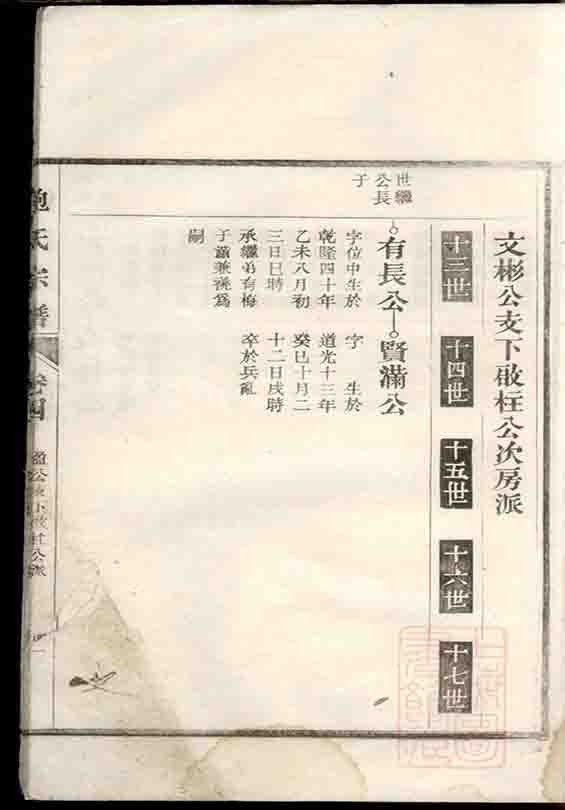 文彬公支下敬枉公次房派
十三世
十四世
十五世
十六世
十七世
世繼
公長
子
有長公
賢滿公
字位中生於
乾隆四十年
乙未八月初
三日巳時
承繼弟有梅
子 兼祧爲
嗣
字 生於
道光十三年
癸巳十月二
十二日戌時
卒於兵亂
鮑氏宗譜
卷四
公支下敬枉公派